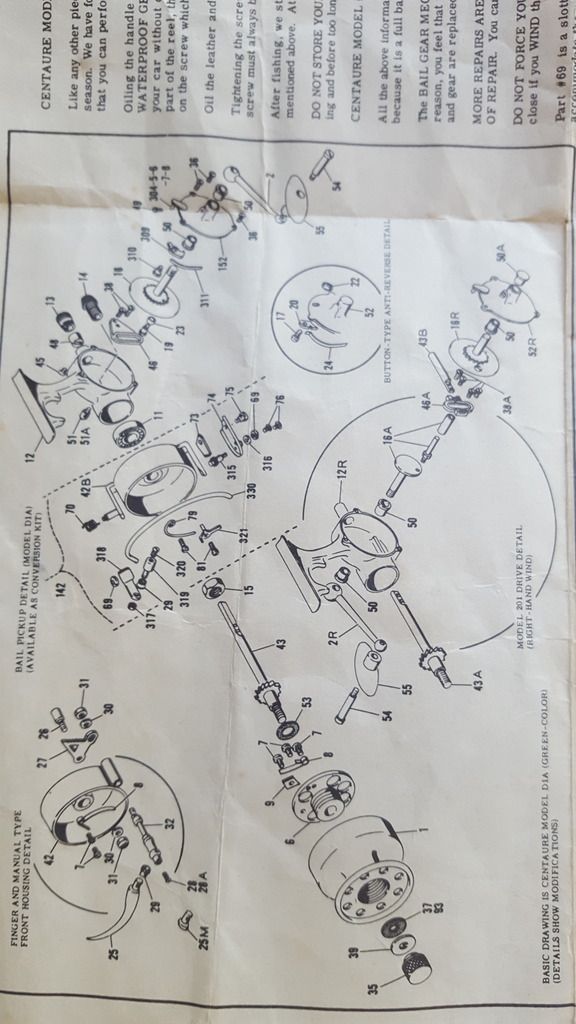 CENTAURE MOD
Like any other pie
season. We have fo
that you can perfo
Oiling the handle
WATERPROOF GE
your car without
part of the reel, th
on the screw which
Oil the leather and
Tightening the scre
screw must always b
After fishing, we st
mentioned above. At
DO NOT STORE YOU
ing and before too lon
CENTAURE MODEL
All the above informa
because it is a full ba
The BAIL GEAR MEC
reason, you feel that
and gear are replaced
MORE REPAIRS ARE
OF REPAIR. You can
DO NOT FORCE YOU
close if you WIND th
Part #69 is a slott
FINGER AND MANUAL TYPE
FRONT HOUSING DETAIL
42
8
7
26
27
31
30
30
31
32
29
28
28A
25
25M
BAIL PICKUP DETAIL (MODEL D1A)
(AVAILABLE AS CONVERSION KIT)
142
70
42B
318
69
317
29
319
320
79
81
321
330
73
74
75
315
69
316
76
12
45
48
13
14
51
51A
11
46
38
18
19
23
310
309
311
50
49
9
304-5-6
-7-8
36
152
50
36
2
55
54
17
20
24
22
52
BUTTON-TYPE ANTI-REVERSE DETAIL
15
43
53
7
7
8
9
6
1
37
93
39
35
12R
50
50
2R
55
54
43A
16A
46A
43B
18R
38A
50
50A
52R
MODEL 201 DRIVE DETAIL
(RIGHT-HAND WIND)
BASIC DRAWING IS CENTAURE MODEL D1A (GREEN-COLOR)
(DETAILS SHOW MODIFICATIONS)